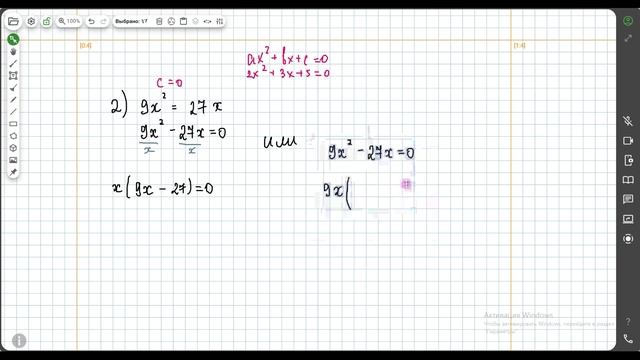 100%
Выбрано: 17
[0:4]
[1:4]
ax² + bx + c = 0
2x² + 3x + 5 = 0
c = 0
2) 9x² = 27x
9x² - 27x = 0
x x
x(9x - 27) = 0
или
9x² - 27x = 0
9x(
Активация Windows
Чтобы активировать Windows, перейдите в раздел
"Параметры".